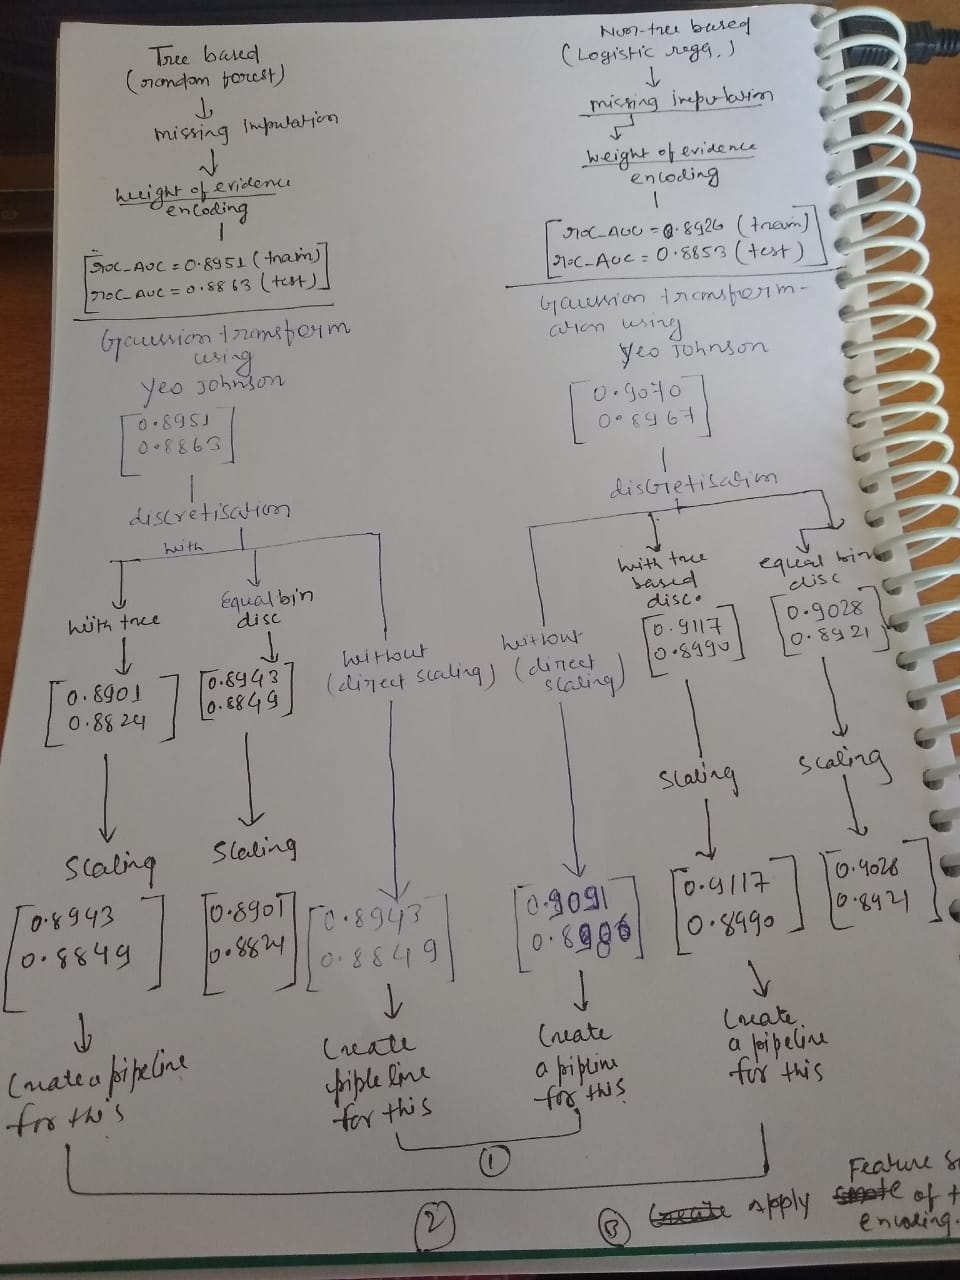 Tree based
(random forest)
missing imputation
weight of evidence
encoding
roc_AUC = 0.8951 (train)
roc_AUC = 0.8863 (test)
Gaussion transform
using
yeo Johnson
0.8951
0.8863
discretisation
with
with tree
0.8901
0.8824
Scaling
0.8943
0.8849
Create a pipeline
for this
Equal bin
disc
0.8943
0.8849
Scaling
0.8901
0.8824
without
(direct scaling)
0.8943
0.8849
Create
piple line
for this
Non-tree based
(Logistic regg.)
missing imputation
weight of evidence
encoding
roc_AUC = 0.8926 (train)
roc_AUC = 0.8853 (test)
Gaussion transform-
ation using
Yeo Johnson
0.9070
0.8967
discretisation
without
(direct
scaling)
0.9091
Create
a pipline
for this
with tree
based
disc.
0.9117
0.8990
Scaling
0.9117
0.8990
Create
a pipeline
for this
equal bin
disc
0.9028
0.8921
Scaling
0.9028
0.8921
1
2
3 Create apply
Feature
of
encoding.